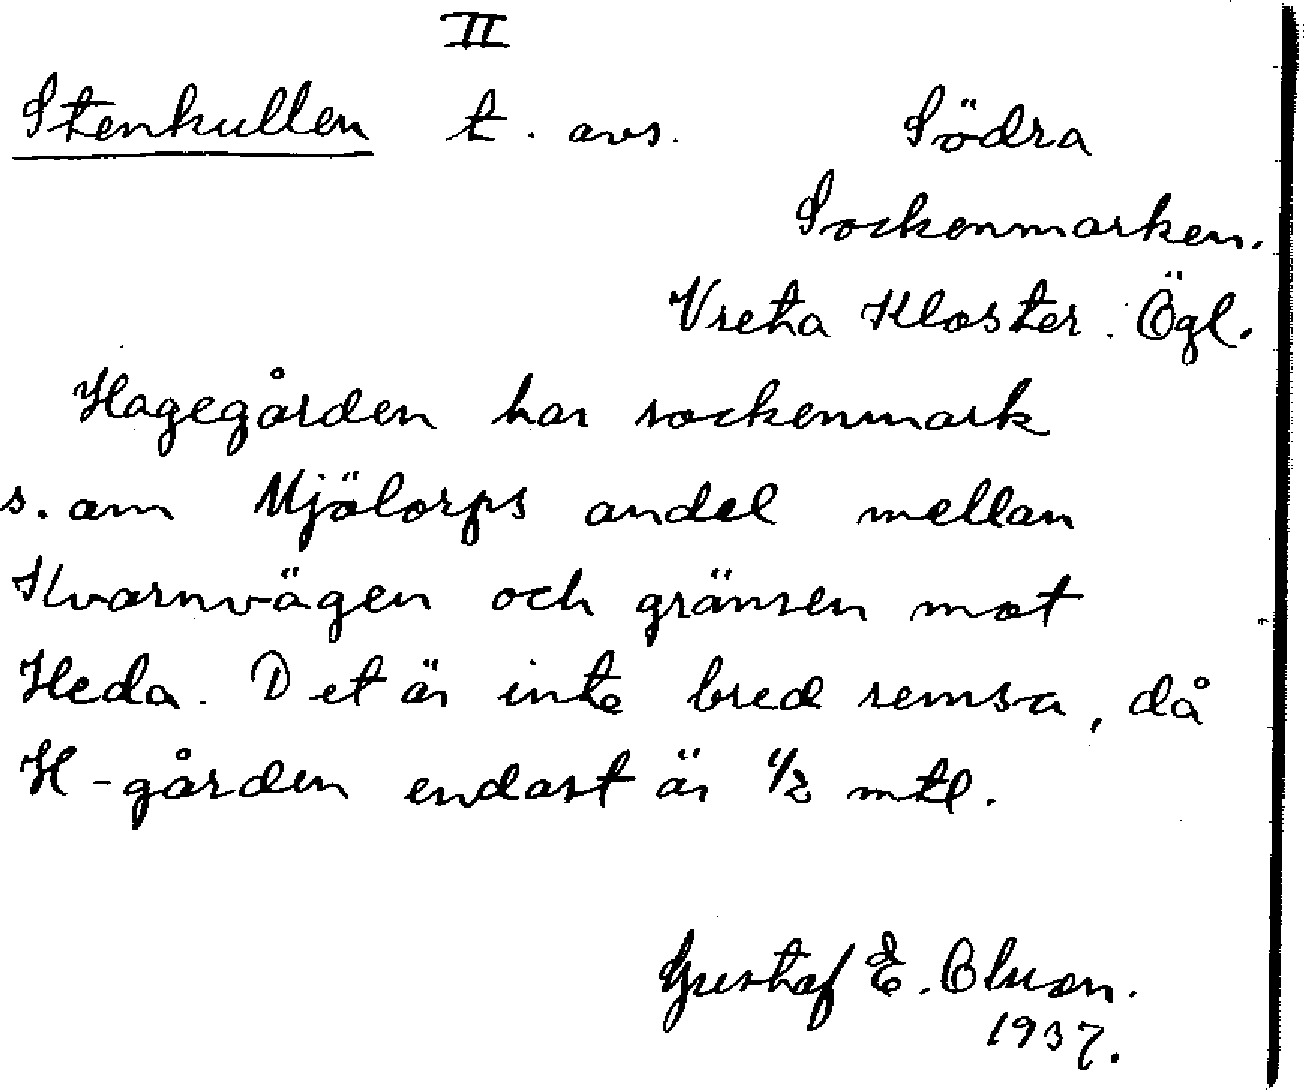 II
Stenkullen t. avs. Södra
Sockenmarken.
Vreta Kloster. Ögl.
Hagegården har sockenmark
s. om Mjölorps andel mellan
Kvarnvägen och gränsen mot
Heda. Det är inte bred remsa, då
H-gården endast är 1/2 mtl.
Gustaf E. Olsson.
1937.